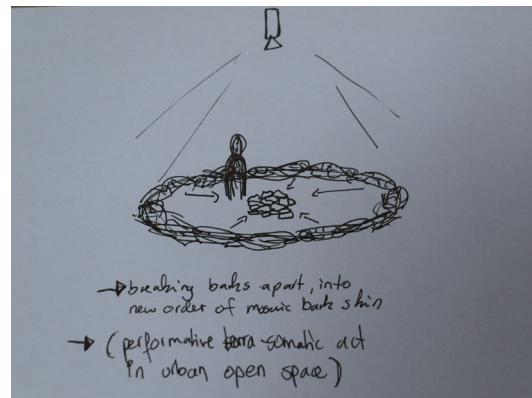 → breaking barks apart, into
new order of mosaic bark skin
→ (performative terra-somatic act
in urban open space)